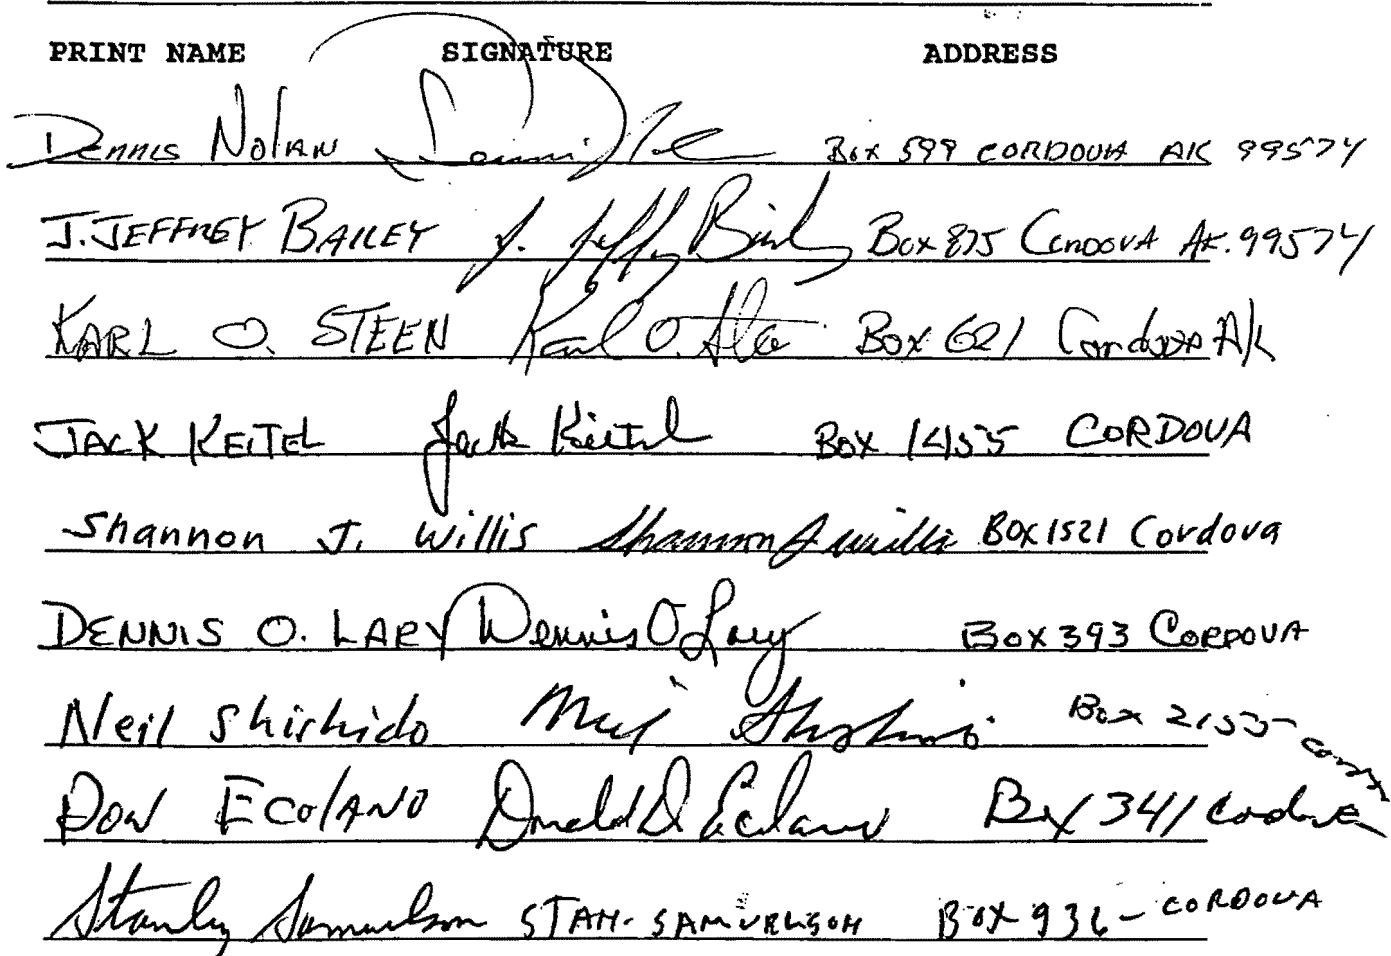 PRINT NAME SIGNATURE ADDRESS
Dennis Nolan Box 599 CORDOVA AK 99574
J. JEFFREY BAILEY J. Jeffrey Bailey Box 875 CORDOVA AK. 99574
KARL O. STEEN Karl O. Box 621 Cordova Ak
JACK KEITEL Jack Keitel Box 1455 CORDOVA
Shannon J. Willis Shannon J Willis Box 1521 Cordova
DENNIS O. LARY Dennis O Lary Box 393 CORDOVA
Neil Shishido Box 2155
DON ECOLANO Donald D. Box 341 Cordova
Stanley Samuelson STAN SAMUELSON BOX 936 - CORDOVA